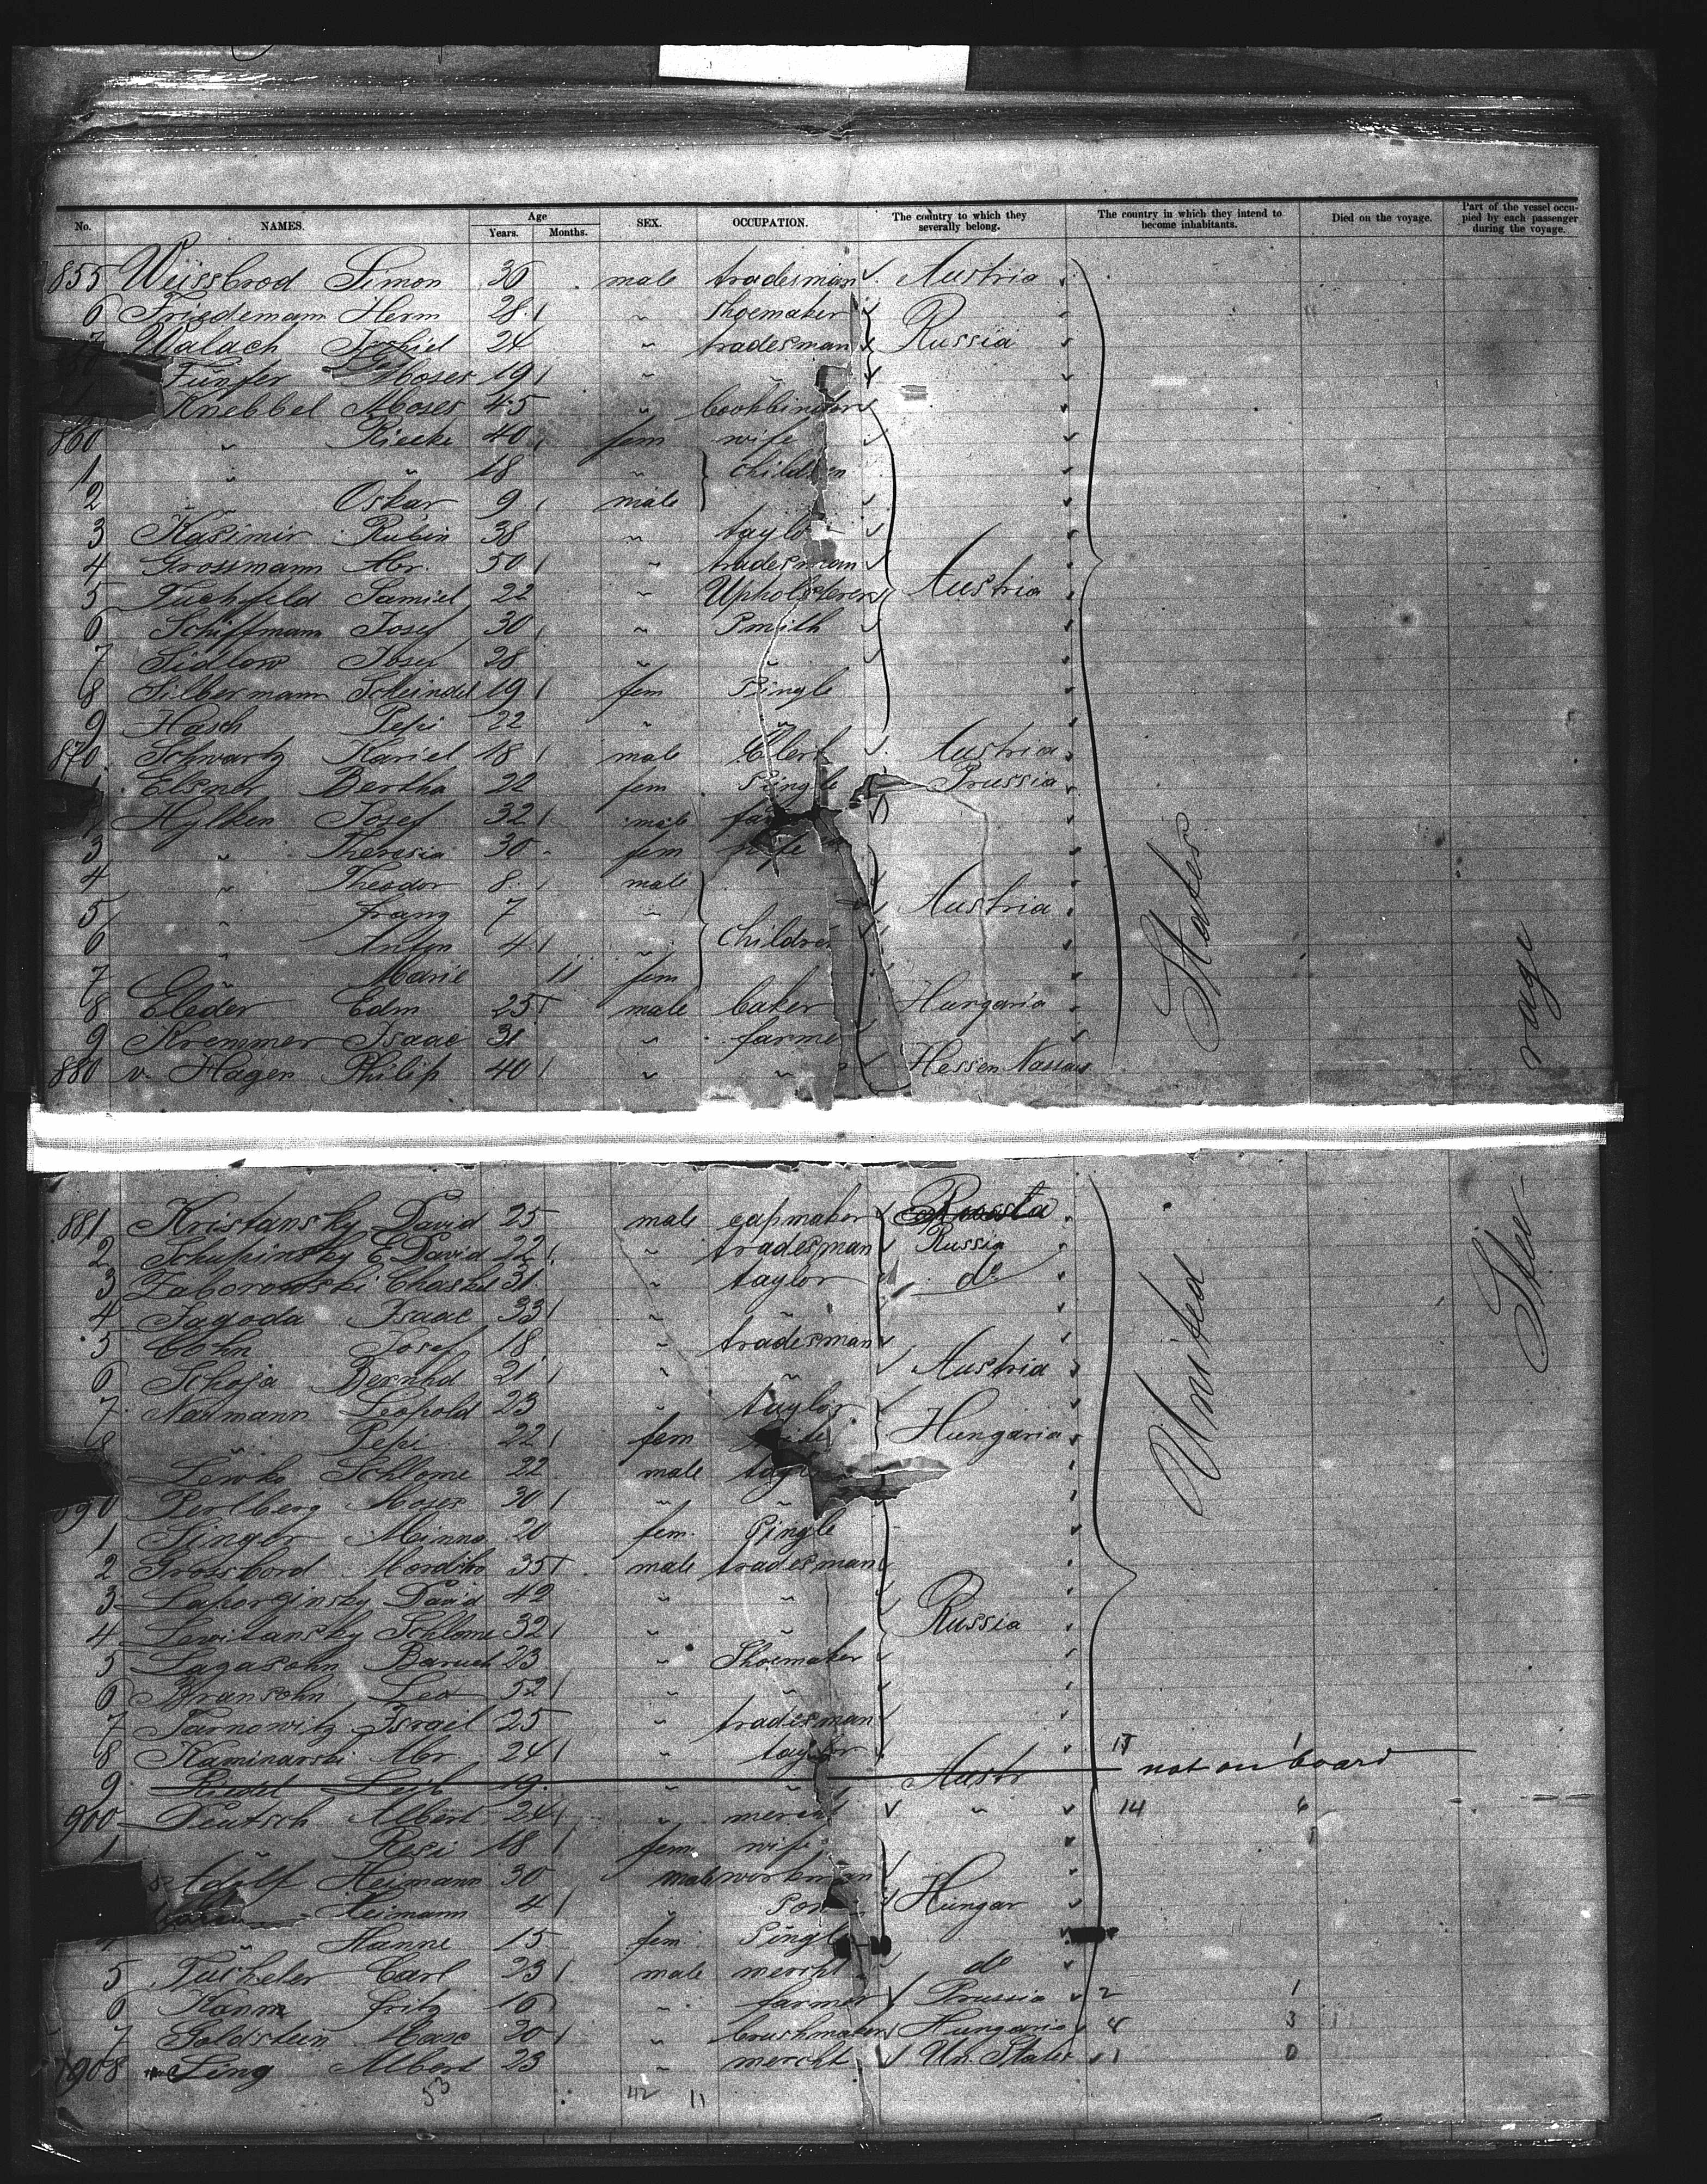 No. NAMES. Age Years. Months. SEX. OCCUPATION. The country to which they severally belong. The country in which they intend to become inhabitants. Died on the voyage. Part of the vessel occupied by each passenger during the voyage.
855 Weissbrod Simon 36 male tradesman Austria
6 Friedemann Herm 28 " Shoemaker
7 Walach 24 " tradesman Russia
Fünfer Moses 19 " "
Knebbel Moses 45 " bookbinder
860 " Riecke 40 fem wife
1 " " 18 " children
2 " Oskar 9 male
3 Kasimir Rubin 38 " taylor
4 Grossmann Abr. 50 " tradesman
5 Tuchfeld Samiel 22 " Upholsterer Austria
6 Schiffmann Josef 30 " Smith
7 Sidlow Josef 28 " "
8 Silbermann Scheindel 19 fem Single
9 Hasch Pepi 22 " "
870 Schwartz Kariel 18 male Clerk Austria
Elsner Bertha 22 fem Single Prussia
Hylken Josef 32 male
3 " Theresia 30 fem wife
4 " Theodor 8 male
5 " Franz 7 " Austria
6 " Anton 4 " Children
7 " Marie 11 fem
8 Eleder Edm 25 male baker Hungaria
9 Kremmer Isaac 31 " farmer
880 v. Hagen Philip 40 " " Hessen Nassau
States
rage
881 Kristansky David 25 male capmaker
2 Schupinsky E David 22 " tradesman Russia
3 Zaborowski Chaskel 31 " taylor do
4 Jagoda Isaac 33 " "
5 Cohn Josef 18 " tradesman
6 Schoja Bernhd 21 " " Austria
7 Naumann Leopold 23 " taylor
8 " Pepi 22 fem wife Hungaria
Lewko Schlome 22 male taylor
890 Perlberg Moses 30 " "
1 Singer Minna 20 fem. Single
2 Grossbord Mordsko 35 male tradesman
3 Laporginsky David 42 " "
4 Lewitansky Schlome 32 " " Russia
5 Lagasohn Baruch 23 " Shoemaker
6 Abransohn Leo 52 " "
7 Tarnowitz Israel 25 " tradesman
8 Kaminarski Abr 24 " taylor
9 Riedel Leib 19 " " Austr not on board
900 Deutsch Albert 24 " mercht " 14 6
1 " Resi 18 fem wife
Adolf Heimann 30 male workman
Heimann 4 " Son Hungar
4 " Hanne 15 fem Single
5 Tücheler Carl 23 male mercht do
6 Kanm Fritz 16 " farmer Prussia 2 1
7 Goldstein Max 20 " brushmaker Hungaria 4 3
908 Sing Albert 23 " mercht Un. States 1 0
53 42 11
United
Stee-